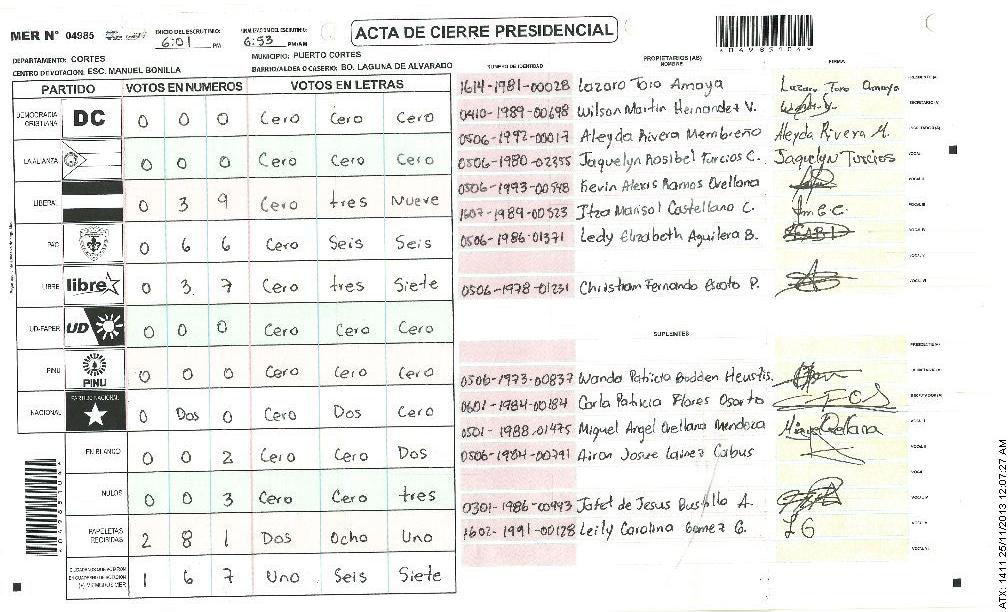 MER N° 04985
INICIO DEL ESCRUTINIO: 6:01 PM
FINALIZACION DEL ESCRUTINIO: 6:53 PM/AM
ACTA DE CIERRE PRESIDENCIAL
DEPARTAMENTO: CORTES
MUNICIPIO: PUERTO CORTES
CENTRO DE VOTACION: ESC. MANUEL BONILLA
BARRIO/ALDEA O CASERIO: BO. LAGUNA DE ALVARADO
PARTIDO VOTOS EN NUMEROS VOTOS EN LETRAS
DEMOCRACIA CRISTIANA DC 0 0 0 Cero Cero Cero
LA ALIANZA 0 0 0 Cero Cero Cero
LIBERAL 0 3 9 Cero tres Nueve
PAC 0 6 6 Cero Seis Seis
LIBRE libre 0 3 7 Cero tres Siete
UD-FAPER UD 0 0 0 Cero Cero Cero
PINU PINU 0 0 0 Cero Cero Cero
NACIONAL PARTIDO NACIONAL 0 Dos 0 Cero Dos Cero
EN BLANCO 0 0 2 Cero Cero Dos
NULOS 0 0 3 Cero Cero tres
PAPELETAS RECIBIDAS 2 8 1 Dos Ocho Uno
CIUDADANOS QUE VOTARON 1 6 7 Uno Seis Siete
NUMERO DE IDENTIDAD PROPIETARIOS (AS) NOMBRE FIRMA
1614-1981-00028 Lazaro Toro Amaya Lazaro Toro Amaya PRESIDENTE (A)
0410-1989-00698 Wilson Martin Hernandez V. SECRETARIO (A)
0506-1992-00017 Aleyda Rivera Membreño Aleyda Rivera M. ESCRUTADOR (A)
0506-1980-02355 Jaquelyn Rosibel Turcios C. Jaquelyn Turcios VOCAL I
0506-1993-00548 Kevin Alexis Ramos Orellana VOCAL II
1607-1989-00523 Itza Marisol Castellano C. VOCAL III
0506-1986-01371 Ledy Elizabeth Aguilera B. VOCAL IV
VOCAL V
0506-1978-01231 Christham Fernando Escoto P. VOCAL VI
SUPLENTES
PRESIDENTE (A)
0506-1973-00837 Wanda Patricia Bodden Heustis. SECRETARIO (A)
0601-1984-00184 Carla Patricia Flores Osorto ESCRUTADOR (A)
0501-1988-01475 Miguel Angel Orellana Mendoza VOCAL I
0506-1984-00791 Airon Josue Lainez Cabus VOCAL II
0301-1986-00993 Jafet de Jesus Bustillo A.
1602-1991-00128 Leily Carolina Gomez G. LG VOCAL V
VOCAL VI
ATX: 1411 25/11/2013 12:07:27 AM